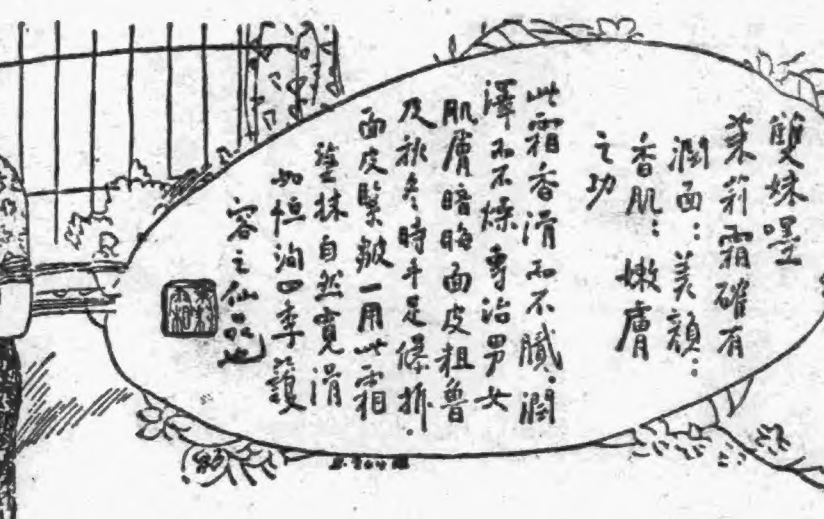 雙妹嚜
茉莉霜確有
潤面:美顏:
香肌:嫩膚
之功
此霜香滑而不膩.潤
澤而不燥專治男女
肌膚暗晦面皮粗魯
及秋冬時手足爆拆.
面皮緊皺一用此霜
塗抹自然寬滑
如恒洵四季護
容之仙品也